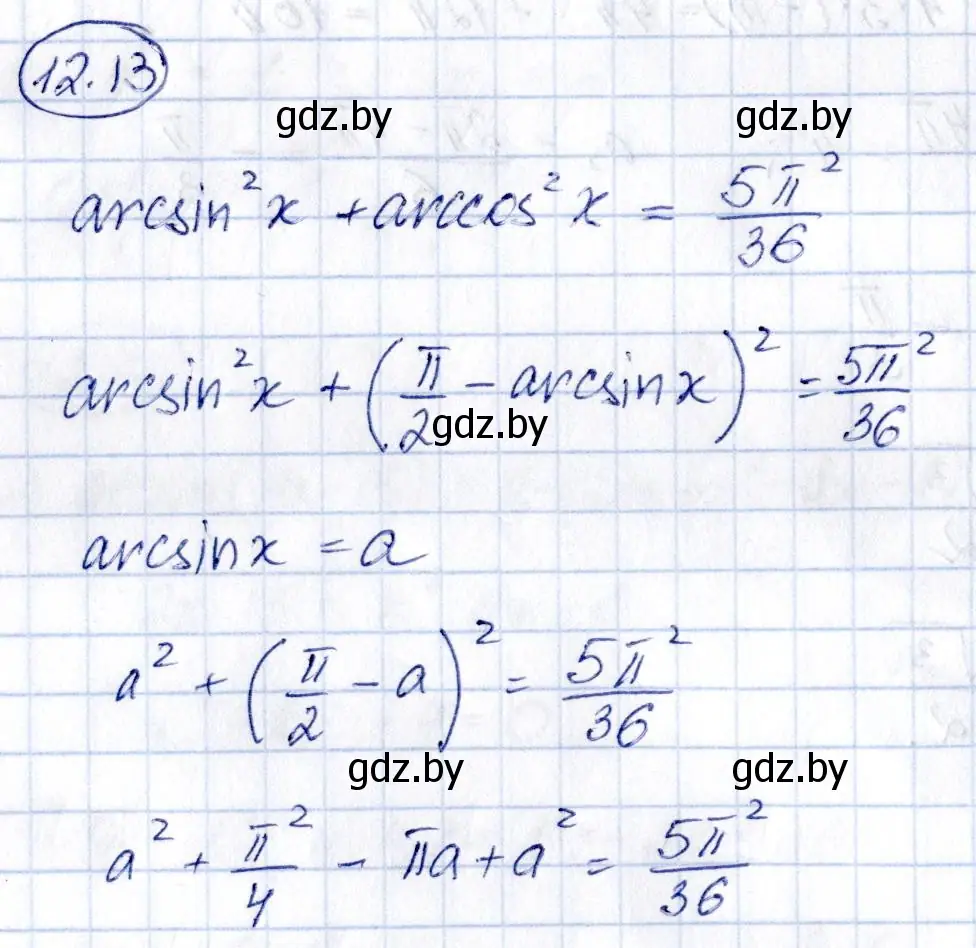 12.13
gdz.by gdz.by
arcsin²x + arccos²x = 5π²/36
arcsin²x + (π/2 - arcsinx)² = 5π²/36
gdz.by
arcsinx = a
a² + (π/2 - a)² = 5π²/36
gdz.by gdz.by
a² + π²/4 - πa + a² = 5π²/36